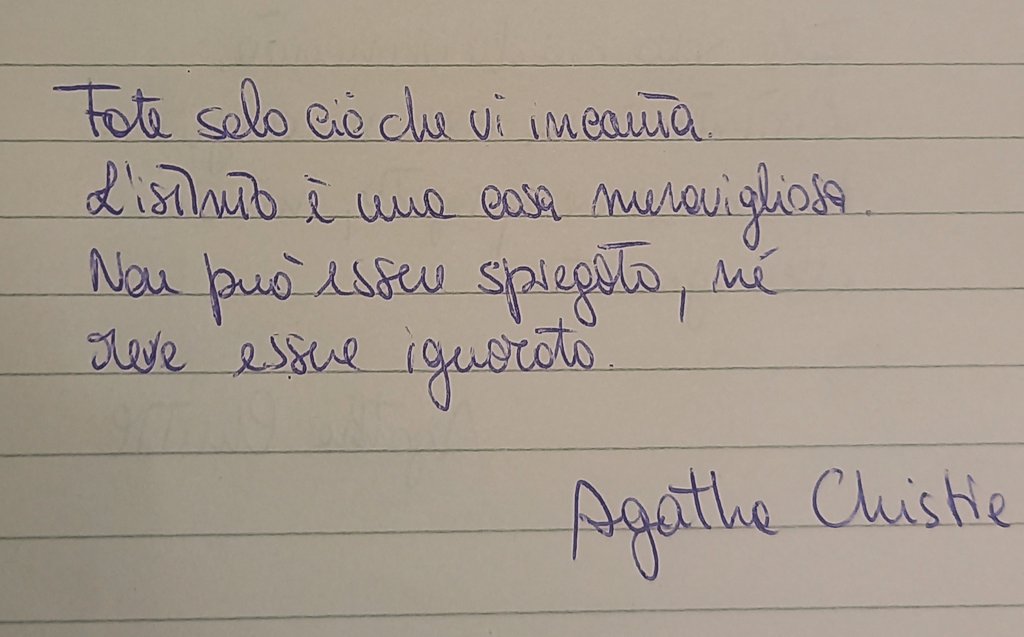 Fate solo ciò che vi incanta.
L'istinto è una cosa meravigliosa.
Non può essere spiegato, né
deve essere ignorato.
Agatha Christie